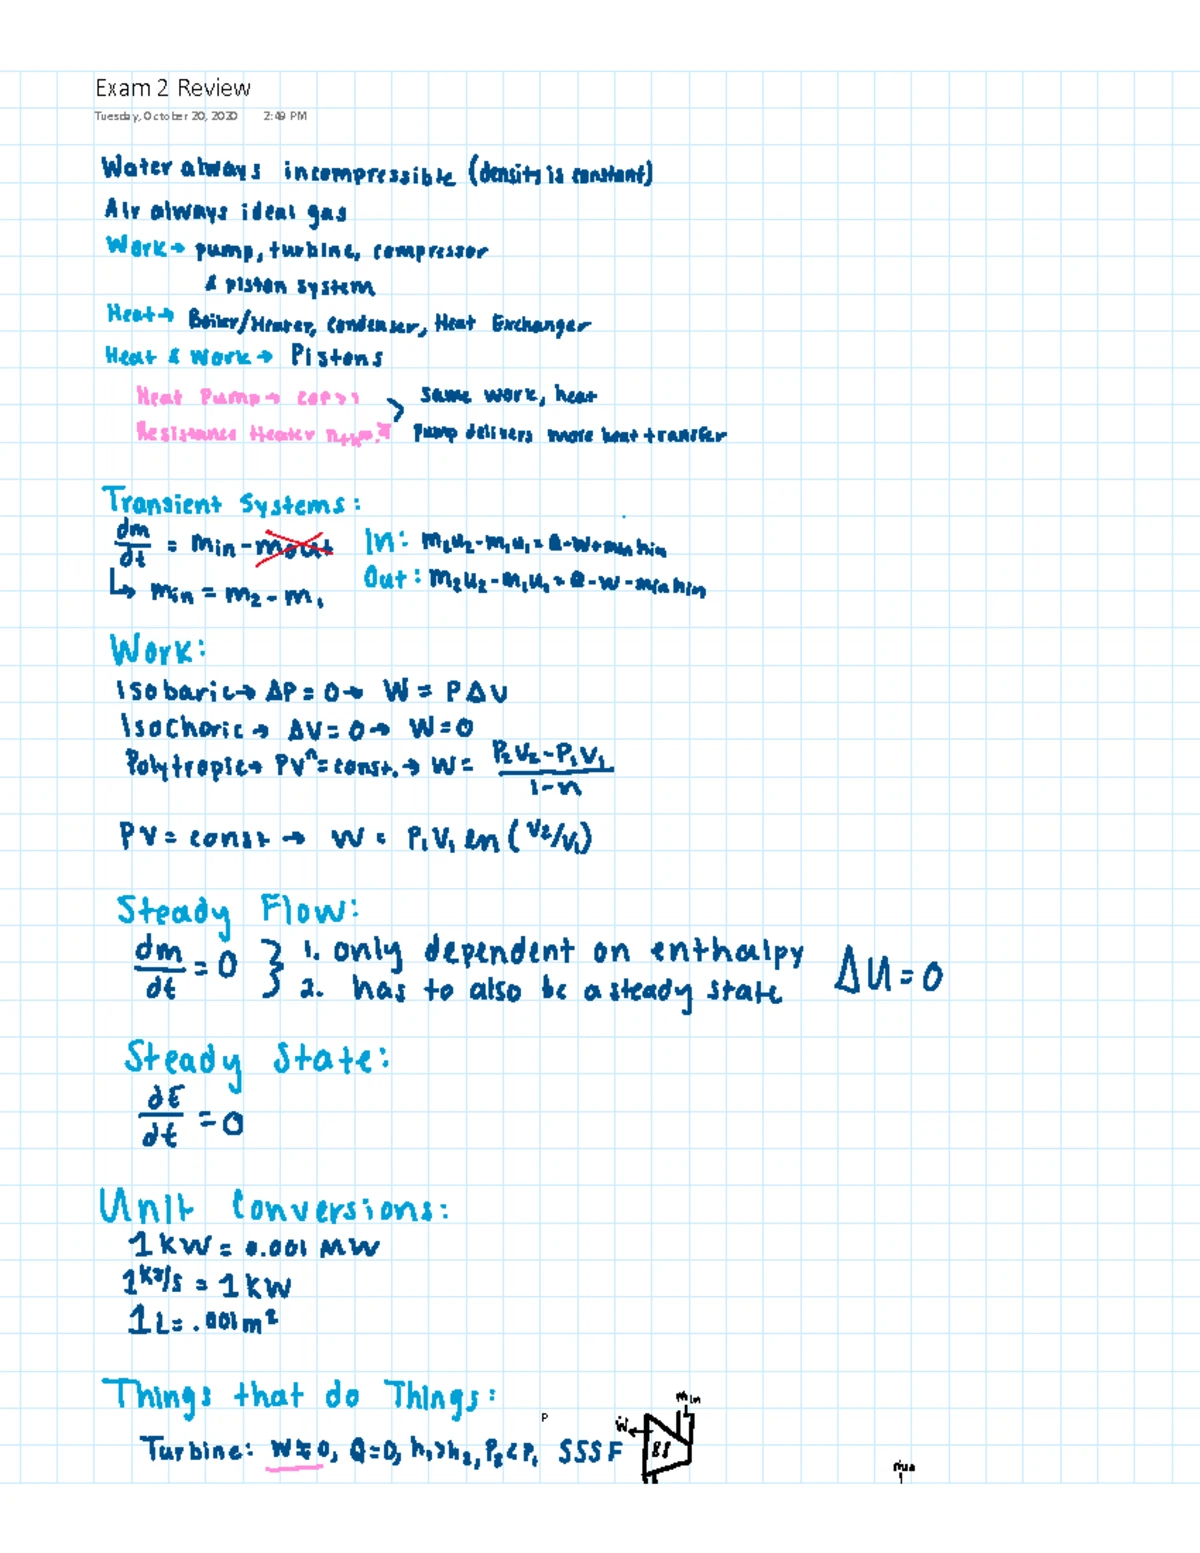 Exam 2 Review
Tuesday, October 20, 2020 2:49 PM
Water always incompressible (density is constant)
Air always ideal gas
Work → pump, turbine, compressor
& piston system
Heat → Boiler/Heater, Condenser, Heat Exchanger
Heat & Work → Pistons
Heat Pump → COP>1 > Same work, heat
Resistance Heater pump delivers more heat transfer
Transient Systems:
dm/dt = min - mout
↳ min = m2 - m1
In: m2u2 - m1u1 = Q - W + minhin
Out: m2u2 - m1u1 = Q - W - minhin
Work:
Isobaric → ΔP = 0 → W = PΔV
Isochoric → ΔV = 0 → W = 0
Polytropic → PVⁿ = const. → W = P2V2 - P1V1 / 1-n
PV = const → W = P1V1 ln (V2/V1)
Steady Flow:
dm/dt = 0 } 1. only dependent on enthalpy ΔU = 0
2. has to also be a steady state
Steady State:
dE/dt = 0
Unit Conversions:
1 kW = 0.001 MW
1 kJ/s = 1 kW
1 L = .001 m²
Things that do Things:
P
Turbine: W≠0, Q=0, h1>h2, P2<P1 SSSF
Ẇ
ṁin